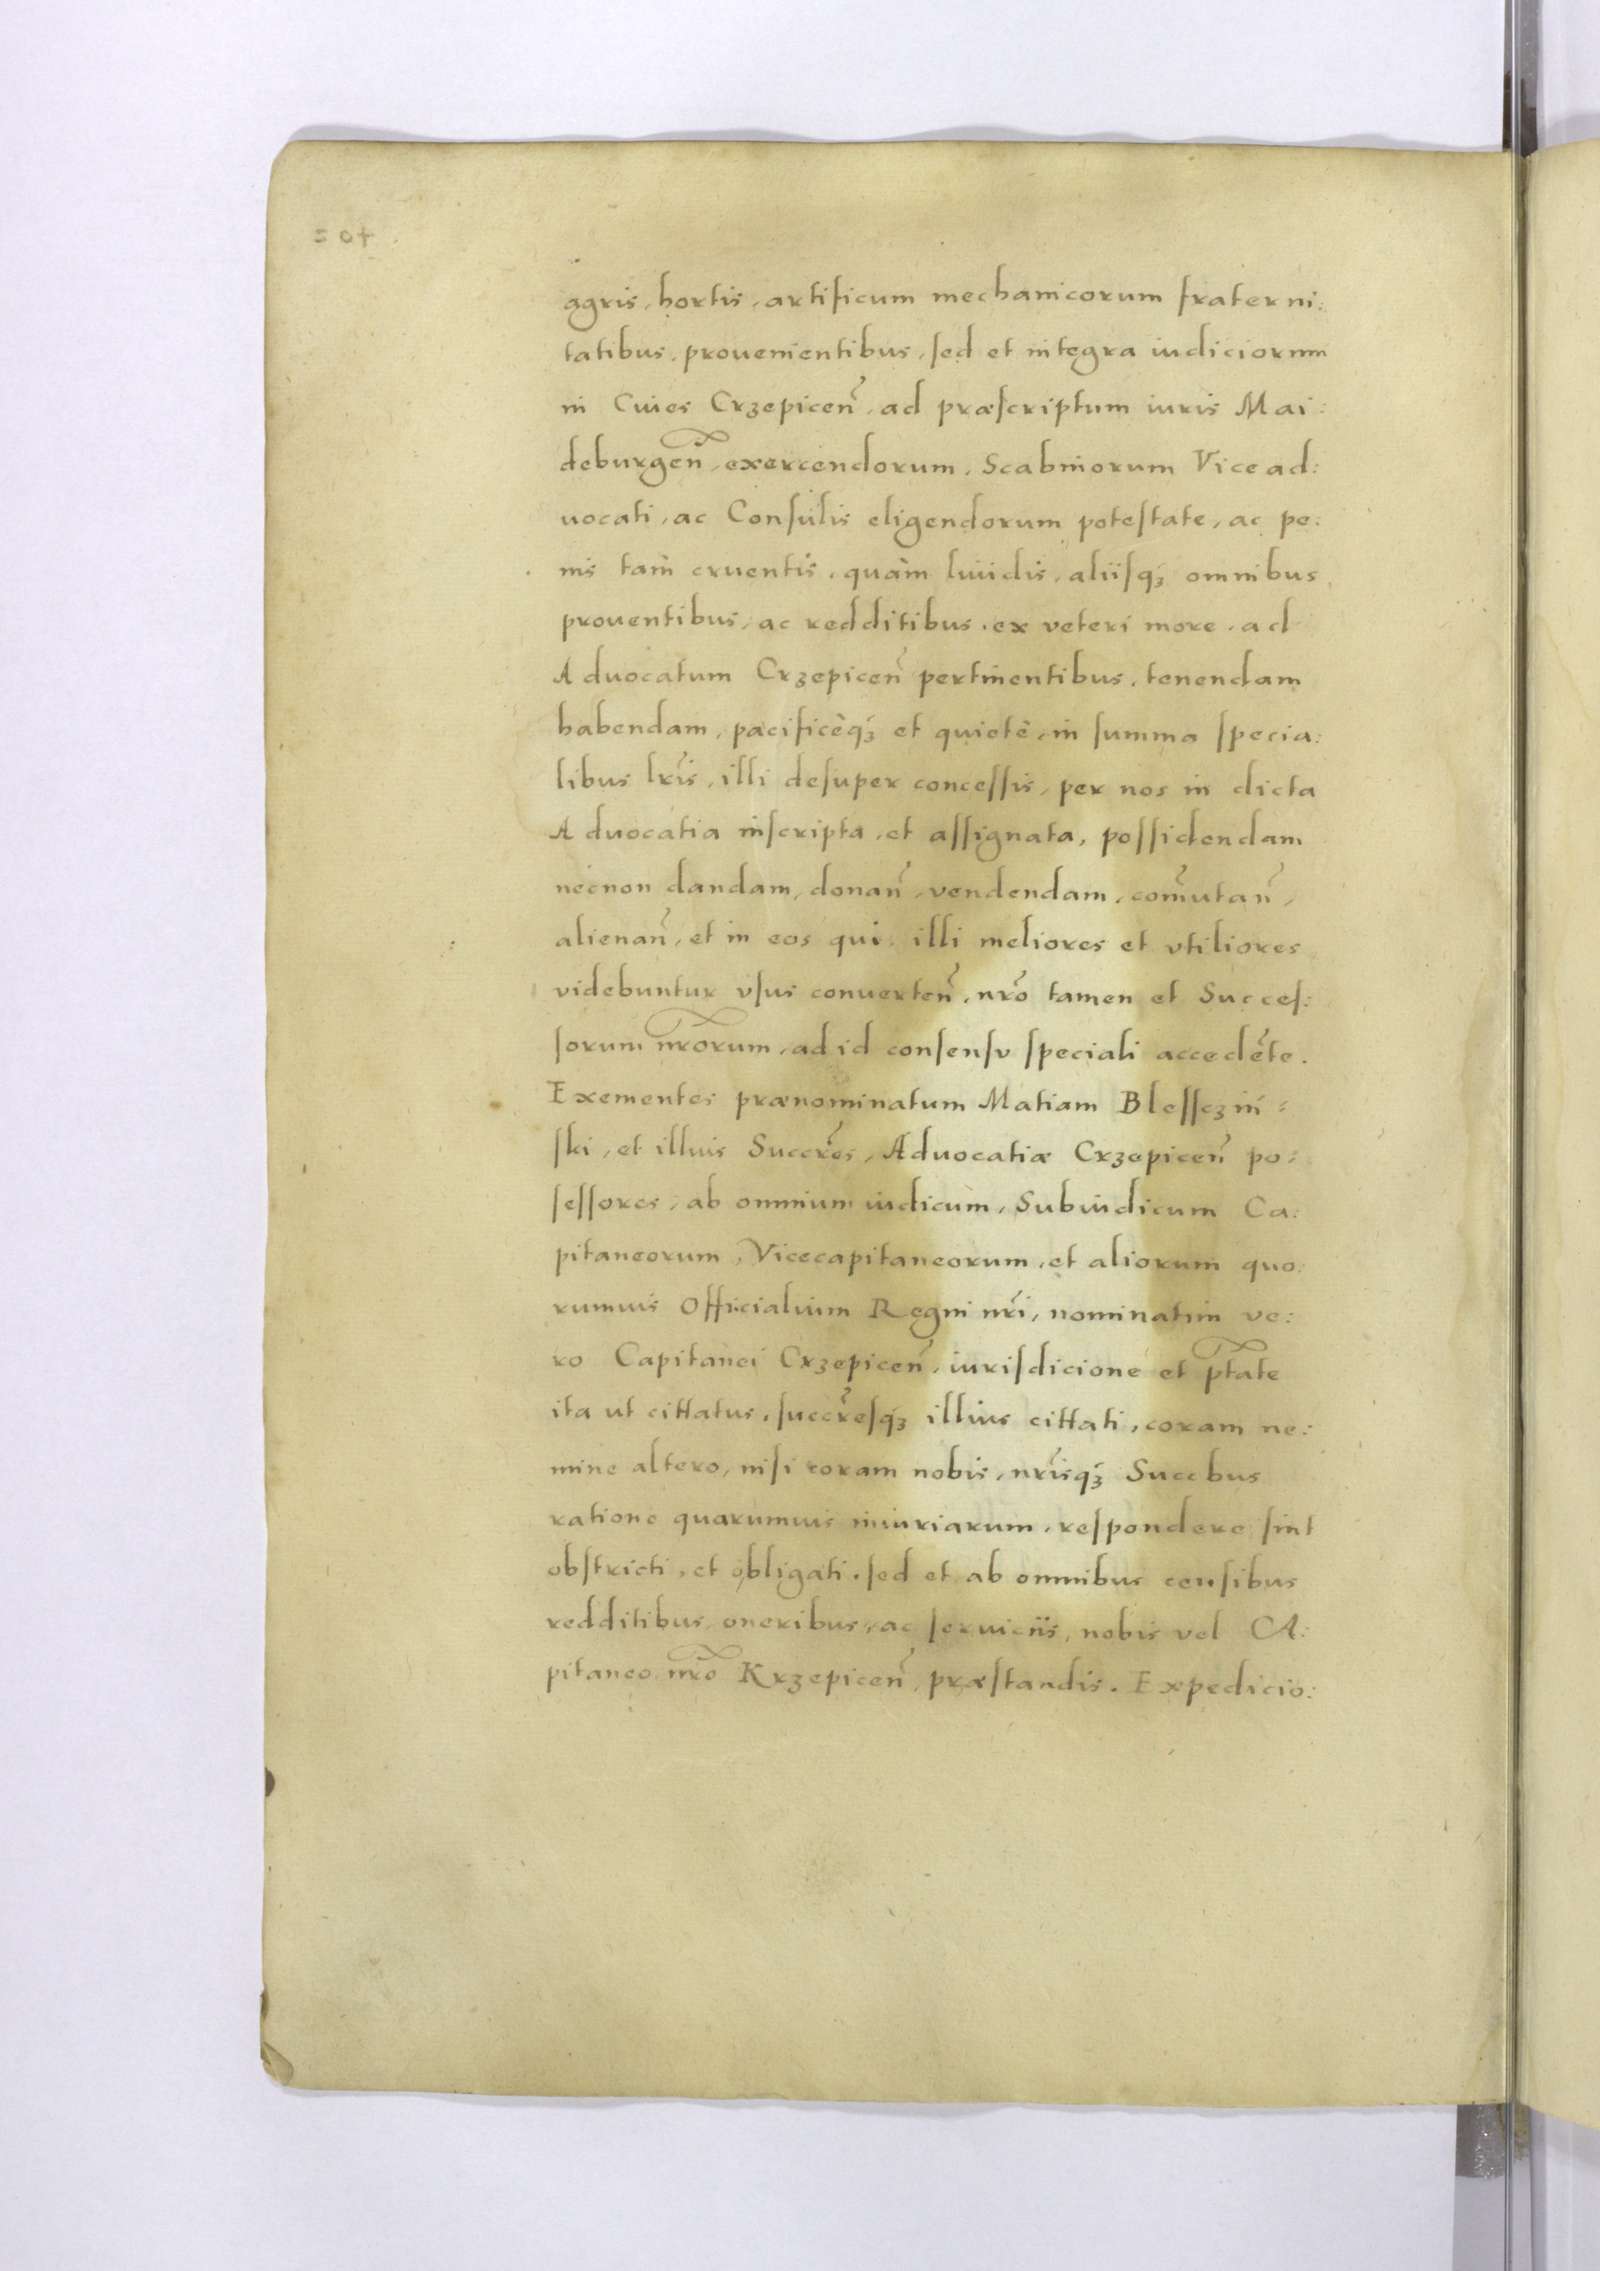 504
agris, hortis, artificum mechanicorum fraterni:
tatibus, prouenientibus, ſed et integra iudiciorum
in Ciues Crzepiceñ, ad præſcriptum iuris Mai:
deburgeñ, exercendorum, Scabinorum Vicead:
uocati, ac Conſulis eligendorum poteſtate, ac pe:
nis tam̀ cruentis, quàm liuidis, aliiſqꝫ omnibus
prouentibus, ac redditibus, ex veteri more, ad
Aduocatum Crzepiceñ pertinentibus, tenendam
habendam, pacificèqꝫ et quietè, in ſumma ſpecia:
libus lr̃is, illi deſuper conceſſis, per nos in dicta
Aduocatia inſcripta, et aſſignata, poſſidendam
necnon dandam, donañ, vendendam, com̃utañ,
alienañ, et in eos qui illi meliores et vtiliores
videbuntur vſus conuerteñ, nr̃o tamen et Succeſ:
ſorum nr̃orum, ad id conſenſv ſpeciali accedẽte.
Exementes prænominatum Matiam Bleſſczin:
ſki, et illius Succr̃es, Aduocatiæ Crzepiceñ po:
ſeſſores, ab omnium iudicum, Subiudicum Ca:
pitaneorum, Vicecapitaneorum, et aliorum quo:
rumuis Officialium Regni nr̃i, nominatim ve:
ro Capitanei Crzepiceñ, iuriſdicione et pt̃ate
ita ut cittatus, ſuccr̃eſqꝫ illius cittati, coram ne:
mine altero, niſi coram nobis, nr̃isqꝫ Succbus
ratione quarumuis iniuriarum, reſpondere ſint
obſtricti, et obligati. ſed et ab omnibus cenſibus
redditibus, oneribus, ac ſeruiciis, nobis vel CA:
pitaneo nr̃o Krzepiceñ, præſtandis. Expedicio: